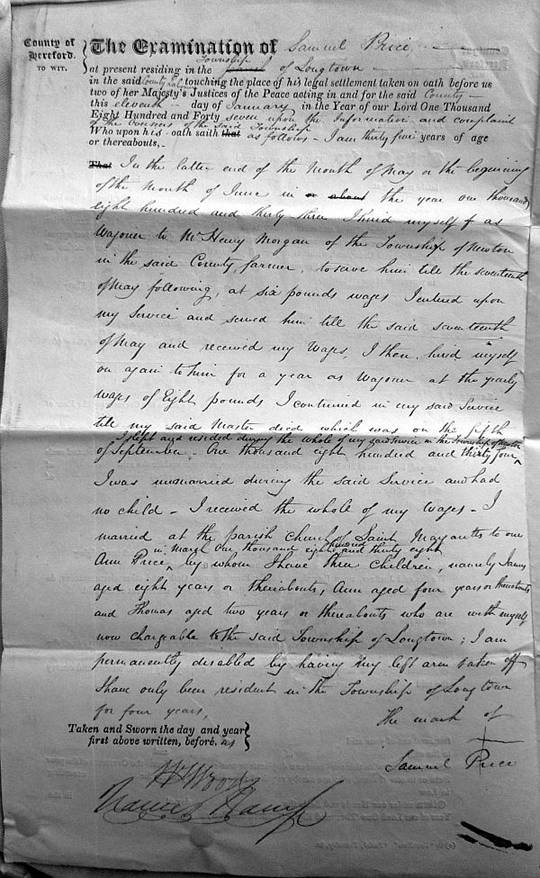 County of Hereford. TO WIT.
The Examination of Samuel Price
at present residing in the parish Township of Longtown
in the said County touching the place of his legal settlement taken on oath before us
two of her Majesty's Justices of the Peace acting in and for the said County
this eleventh day of January in the Year of our Lord One Thousand
Eight Hundred and Forty seven upon the Information and complaint
of the said Township
Who upon his oath saith that as follows - I am thirty five years of age
or thereabouts,
That In the latter end of the Month of May or the beginning
of the Month of June in or about the year one thousand
eight hundred and thirty three I hired myself as
Wagoner to Mr Henry Morgan of the Township of Newton
in the said County farmer, to serve him till the seventeenth
of May following, at six pounds wages I entered upon
my Service and served him till the said seventeenth
of May and received my Wages, I then hired myself
on again to him for a year as Wagoner at the yearly
wages of Eight pounds I continued in my said Service
till my said Master died which was on the fifth
I slept and resided during the whole of my said service in the Township of Newton
of September One thousand eight hundred and thirty four
I was unmarried during the said Service and had
no child - I received the whole of my Wages - I
married at the parish Church of Saint Margaretts to one
in March One thousand eight hundred and thirty eight
Ann Price by whom I have three Children, namely James
aged eight years or thereabouts, Ann aged four years or thereabouts
and Thomas aged two years or thereabouts who are with myself
now chargeable to the said Township of Longtown; I am
permanently disabled by having my left arm taken off
I have only been resident in the Township of Longtown
for four years,
The mark of
Taken and Sworn the day and year
first above written, before, us
Samuel Price